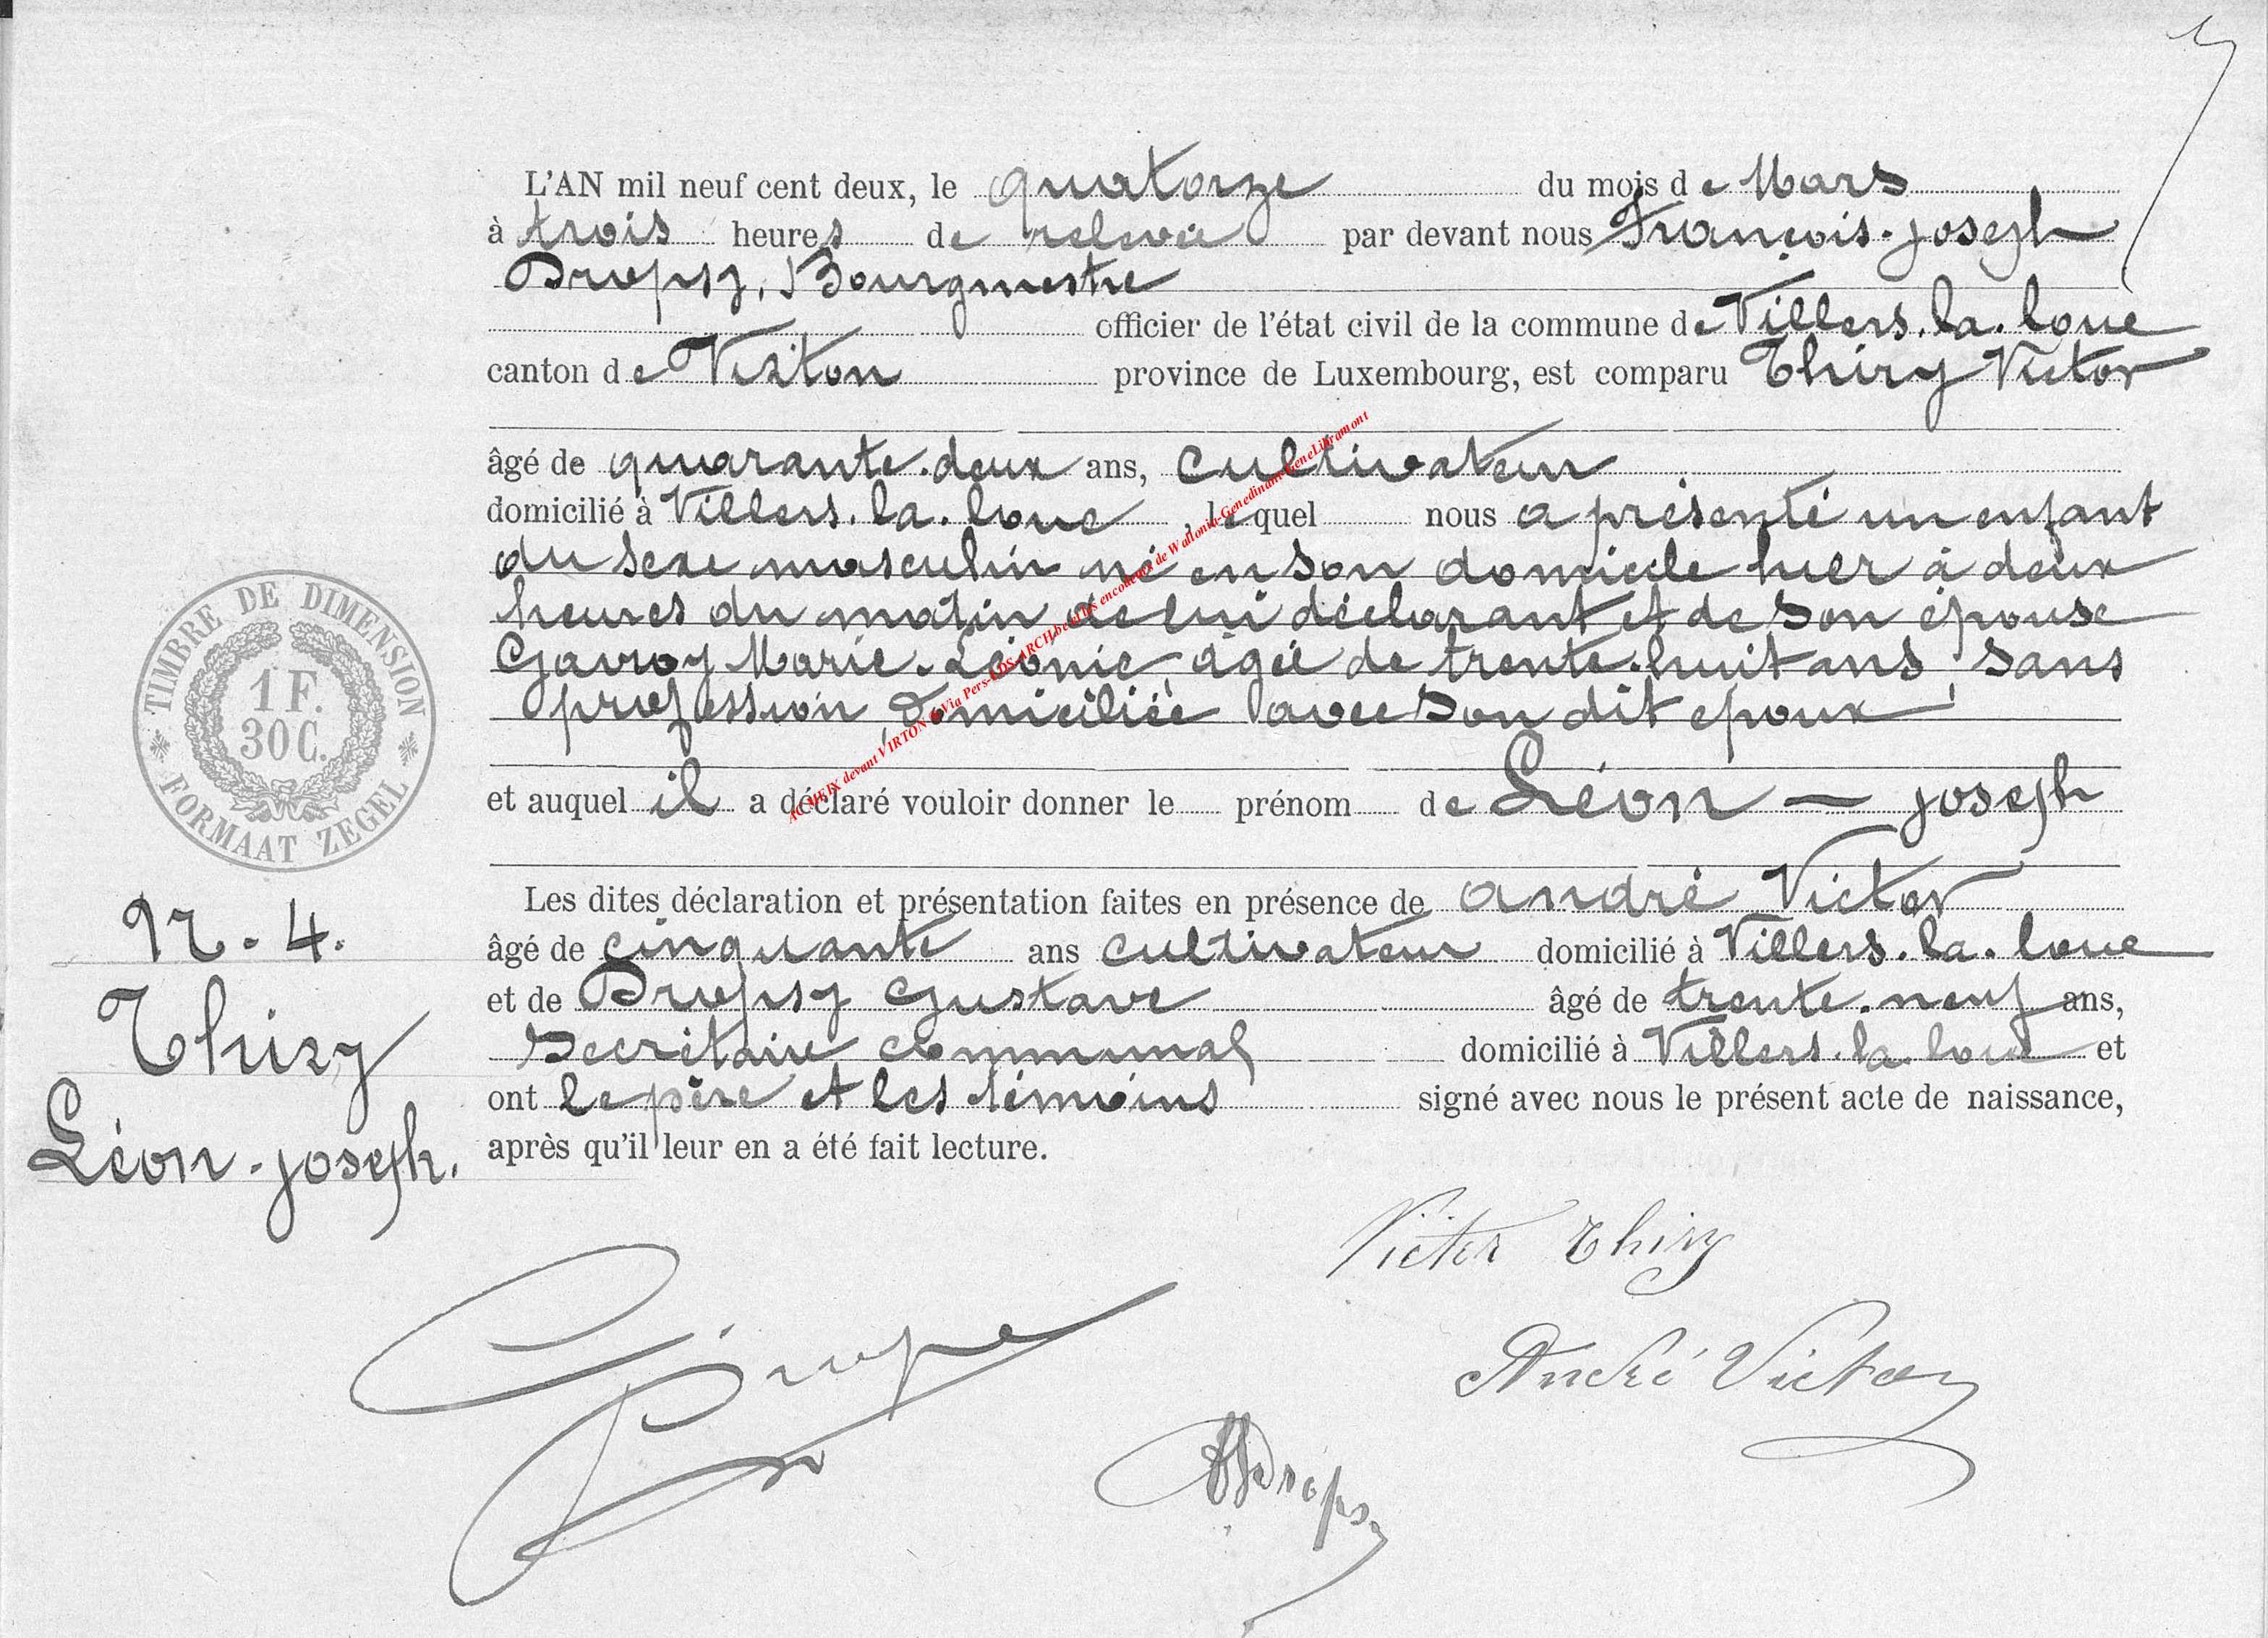 L'AN mil neuf cent deux, le quatorze du mois de Mars
à trois heures de relevée par devant nous François-joseph
Dropsy, Bourgmestre
officier de l'état civil de la commune de Villers.la.loue
canton de Virton province de Luxembourg, est comparu Thiry Victor
âgé de quarante.deux ans, cultivateur
domicilié à Villers.la.loue, lequel nous a présenté un enfant
du sexe masculin né en son domicile hier à deux
heures du matin de lui déclarant et de son épouse
Gavroy Marie-Léonie, âgée de trente.huit ans, sans
profession, domiciliée avec son dit époux
et auquel il a déclaré vouloir donner le prénom de Léon - joseph
Les dites déclaration et présentation faites en présence de andré Victor
âgé de cinquante ans cultivateur domicilié à Villers.la.loue
et de Dropsy Gustave âgé de trente.neuf ans,
secrétaire communal domicilié à Villers.la.loue et
ont le père et les témoins signé avec nous le présent acte de naissance,
après qu'il leur en a été fait lecture.
TIMBRE DE DIMENSION
1 F.
30 C.
FORMAAT ZEGEL
Nº. 4.
Thiry
Léon-joseph.
Victor Thiry
André Victor
Dropsy
AC MEIX devant VIRTON © Via Pers-LDS-ARCH.be et les encodeurs de Wallonia-Genedinant-GeneLibramont